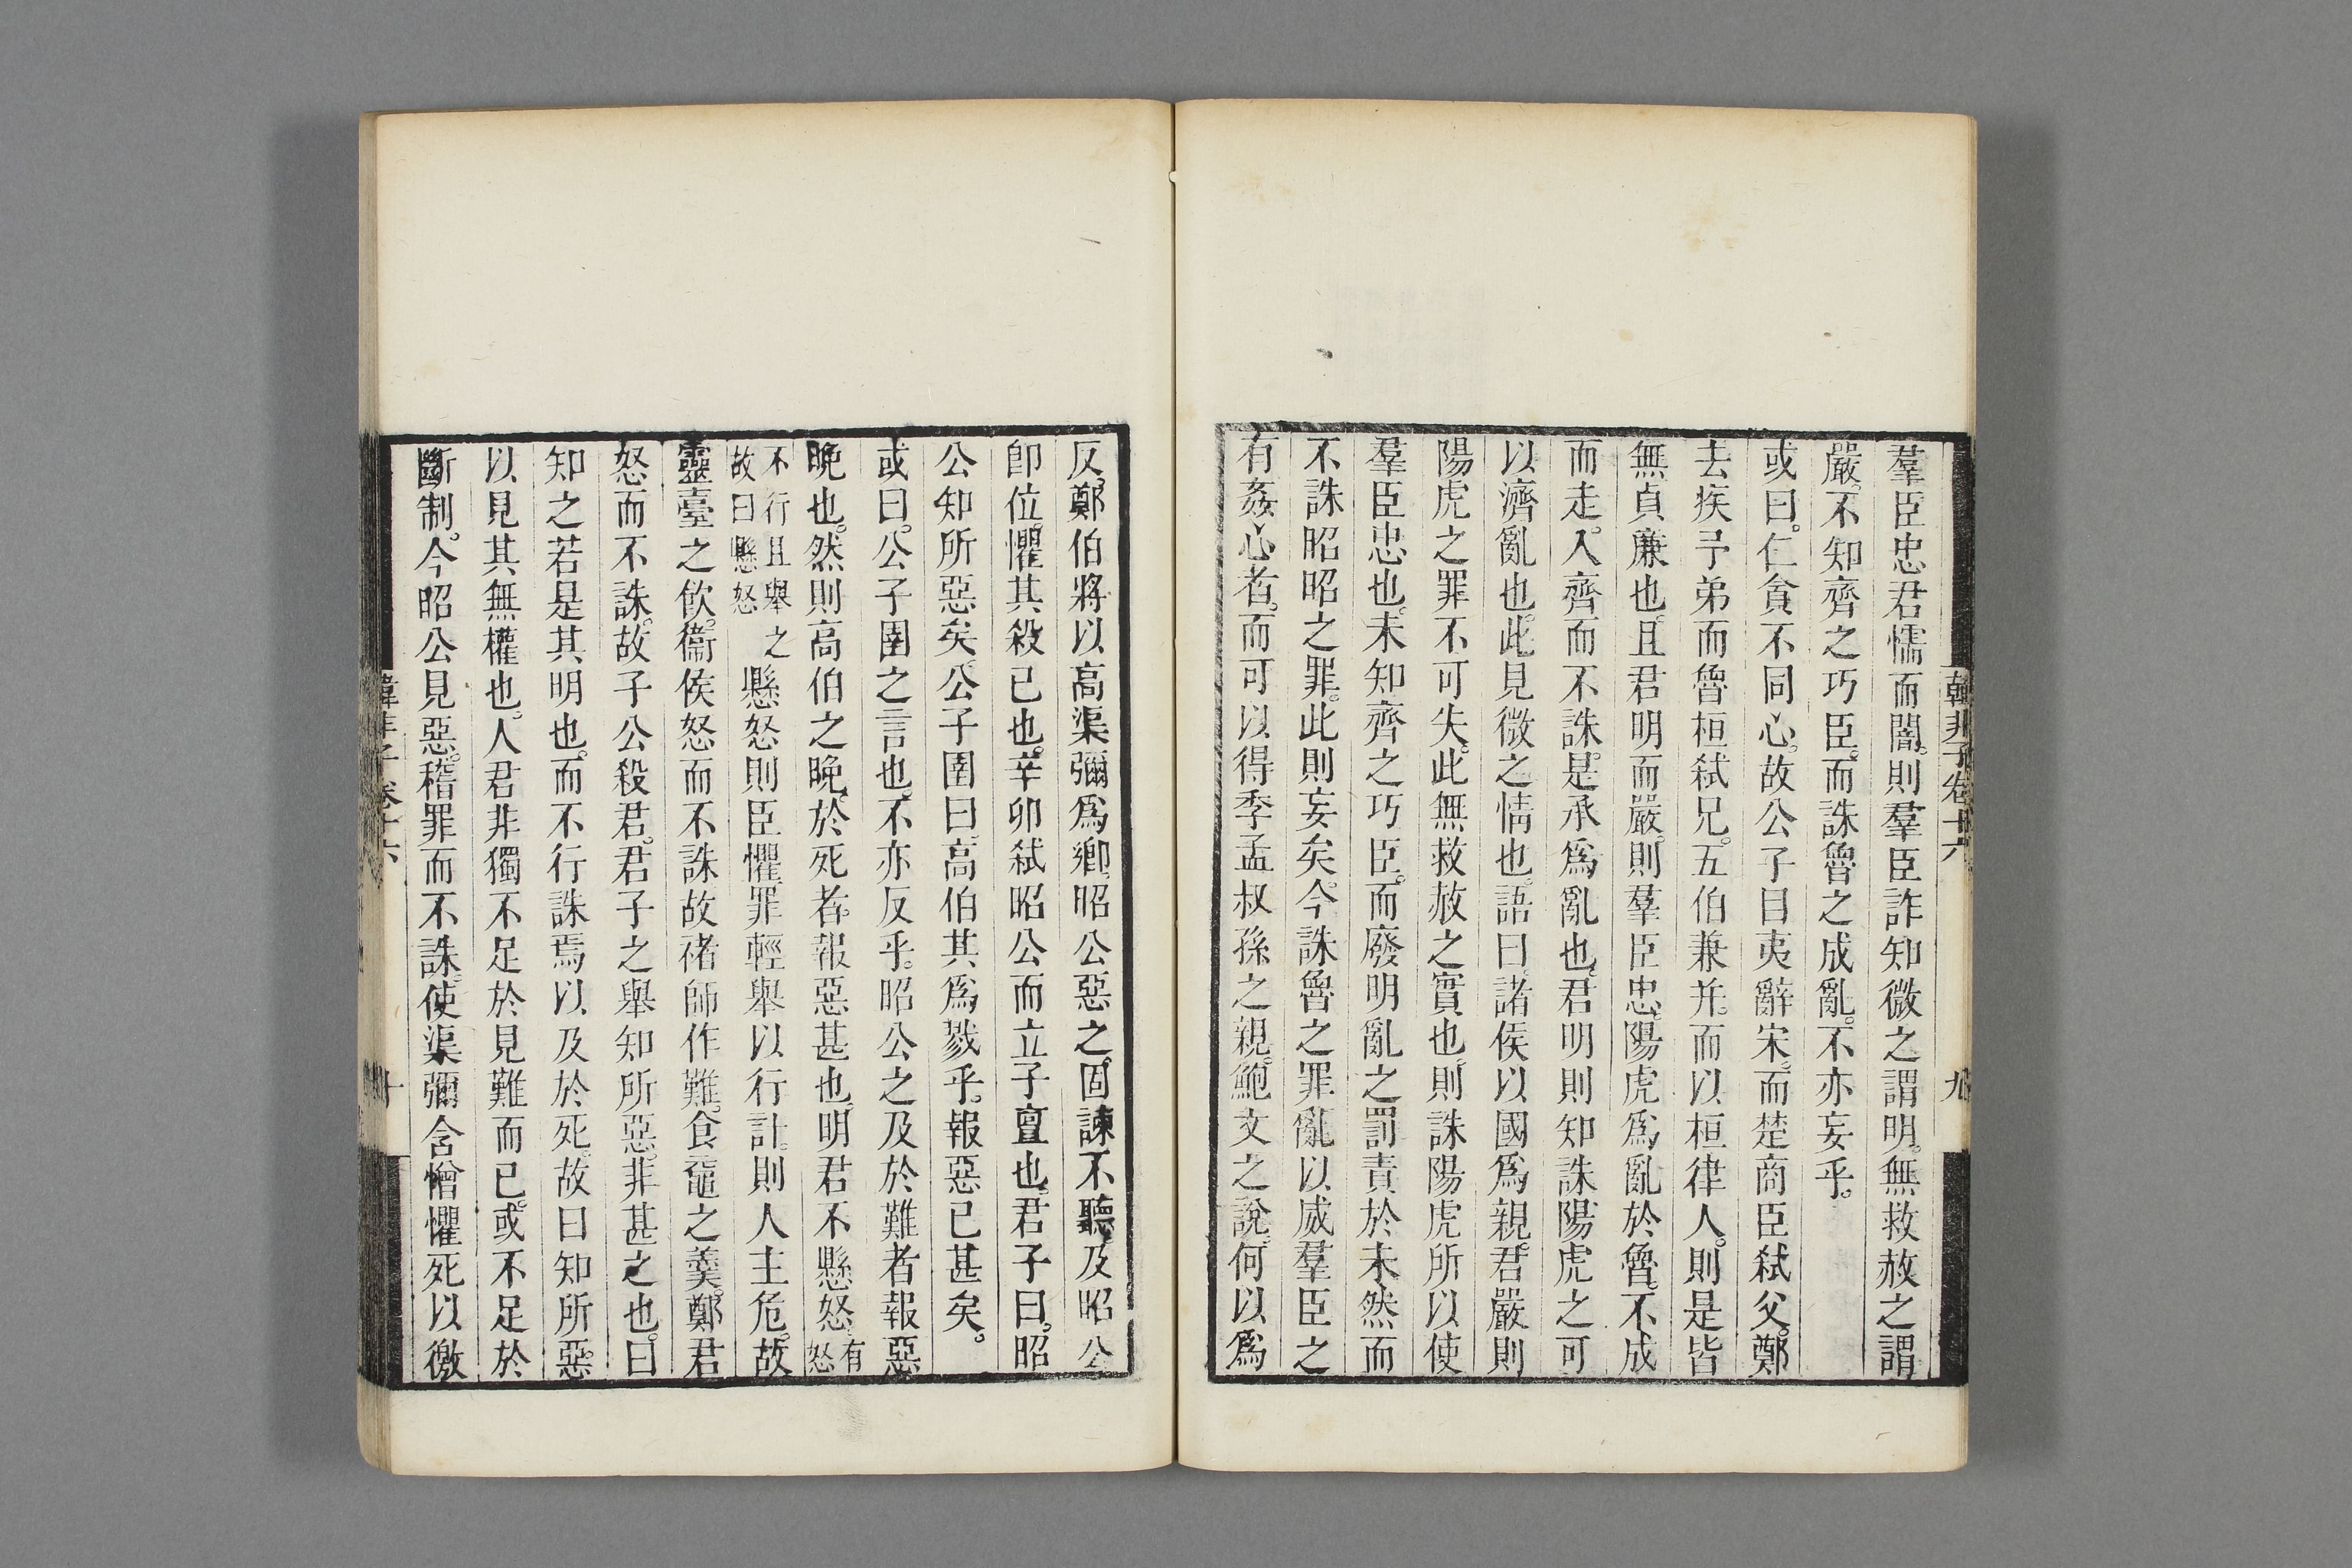 韓非子卷十六 九
羣臣忠君懦而闇。則羣臣詐知微之謂明。無救赦之謂
嚴。不知齊之巧臣。而誅魯之成亂。不亦妄乎。
或曰。仁貪不同心。故公子目夷辭宋。而楚商臣弑父。鄭
去疾予弟而魯桓弑兄。五伯兼并。而以桓律人。則是皆
無貞廉也。且君明而嚴。則羣臣忠。陽虎爲亂於魯。不成
而走。入齊而不誅。是承爲亂也。君明則知誅陽虎之可
以濟亂也。此見微之情也。語曰。諸侯以國爲親。君嚴則
陽虎之罪不可失。此無救赦之實也。則誅陽虎所以使
羣臣忠也。未知齊之巧臣。而廢明亂之罰責於未然而
不誅昭昭之罪。此則妄矣。今誅魯之罪亂以威羣臣之
有姦心者。而可以得季孟叔孫之親。鮑文之說。何以爲
反。鄭伯將以高渠彌爲卿。昭公惡之。固諫不聽及昭公
卽位。懼其殺已也。辛卯弑昭公而立子亶也。君子曰。昭
公知所惡矣。公子圉曰。高伯其爲戮乎。報惡已甚矣。
或曰。公子圉之言也。不亦反乎。昭公之及於難者報惡
晚也。然則高伯之晚。於死者。報惡甚也。明君不懸怒。有怒
不行且舉之故曰懸怒懸怒則臣懼罪輕舉以行計。則人主危。故
靈臺之飮。衞侯怒而不誅故禇師作難。食黿之羹。鄭君
怒而不誅。故子公殺君。君子之舉知所惡。非甚之也。曰
知之若是其明也。而不行誅焉以及於死。故曰知所惡。
以見其無權也。人君非獨不足於見難而已。或不足於
斷制。今昭公見惡。稽罪而不誅。使渠彌含憎懼死以徼
韓非子 卷十六 十